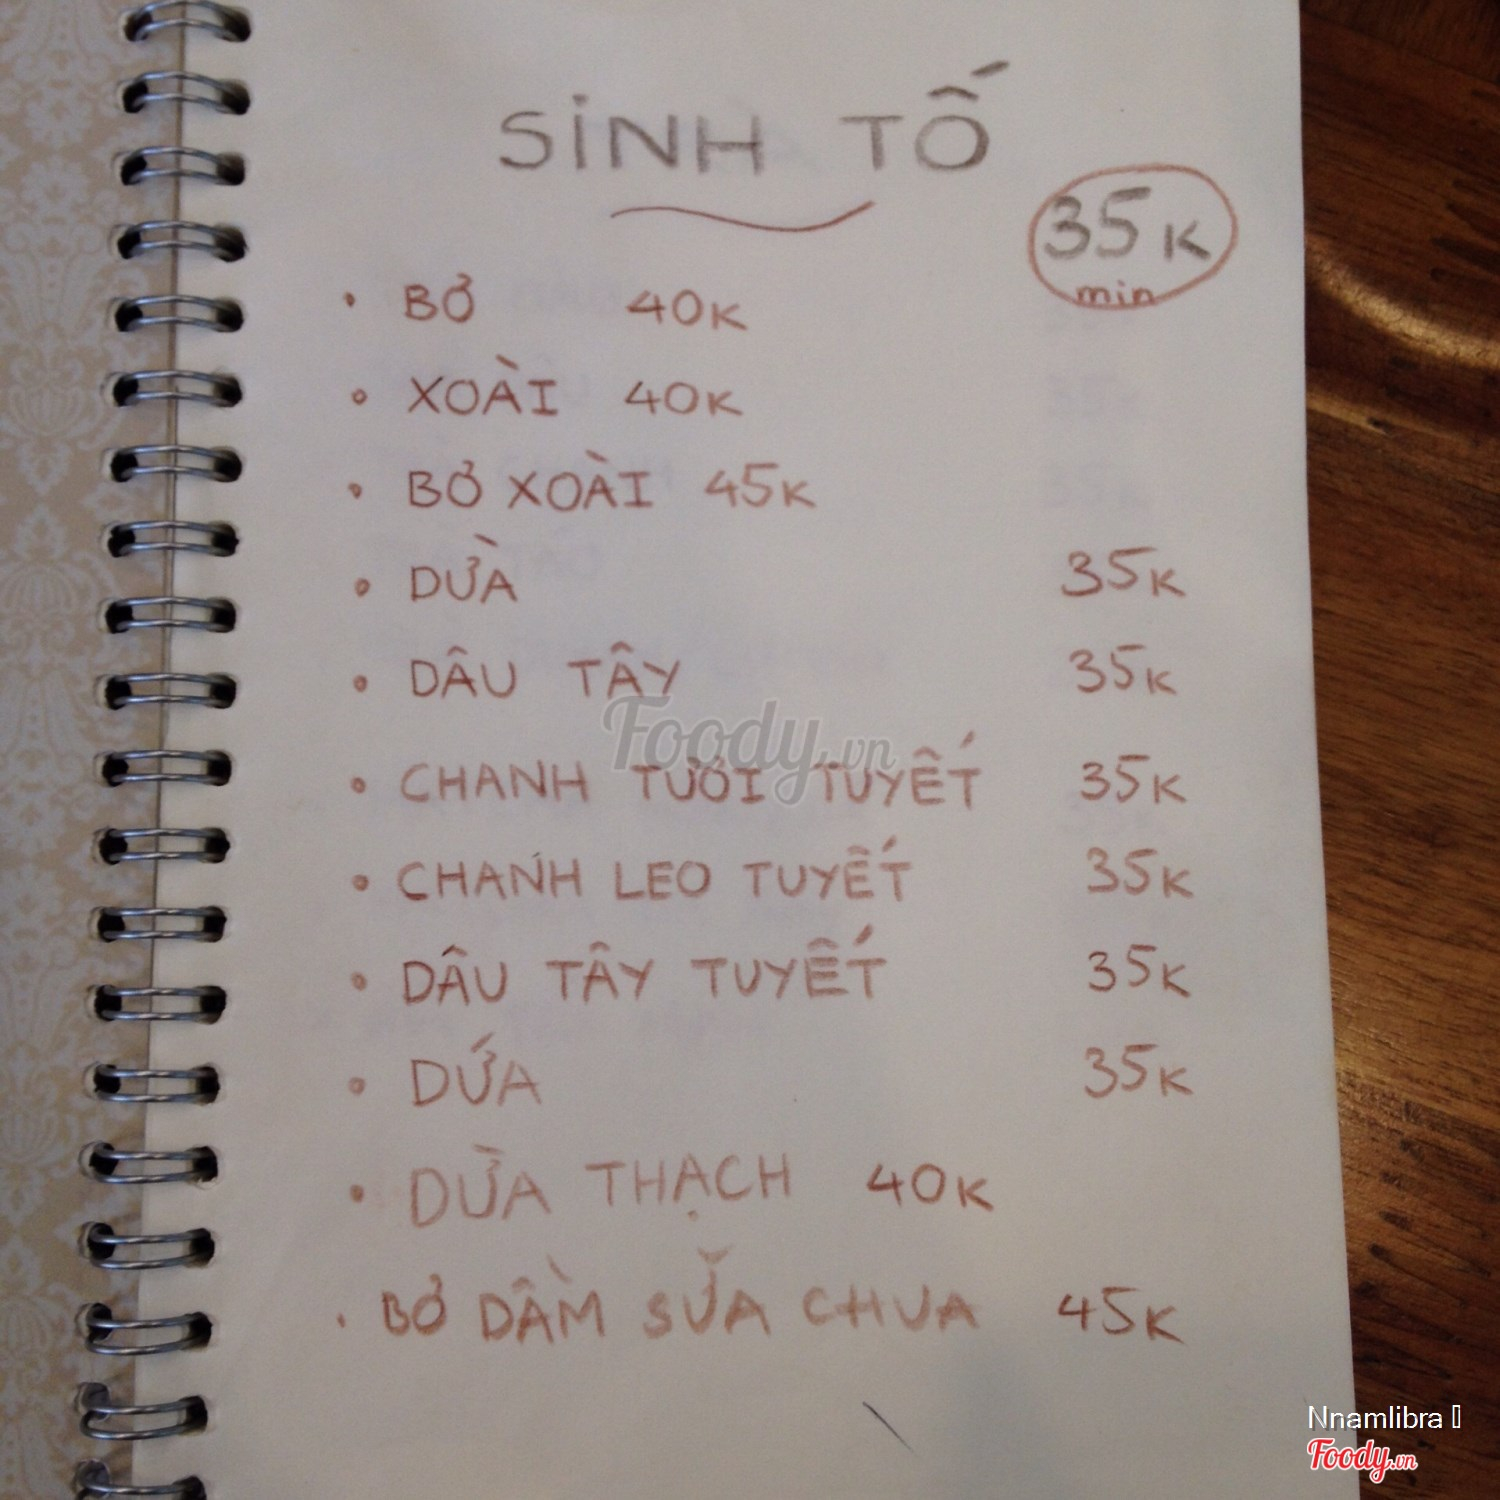 SINH TỐ
35K
min
• BƠ 40K
• XOÀI 40K
• BƠ XOÀI 45K
• DỪA 35K
• DÂU TÂY 35K
• CHANH TƯƠI TUYẾT 35K
• CHANH LEO TUYẾT 35K
• DÂU TÂY TUYẾT 35K
• DỨA 35K
• DỪA THẠCH 40K
• BƠ DẦM SỮA CHUA 45K
Foody.vn
Nnamlibra
Foody.vn